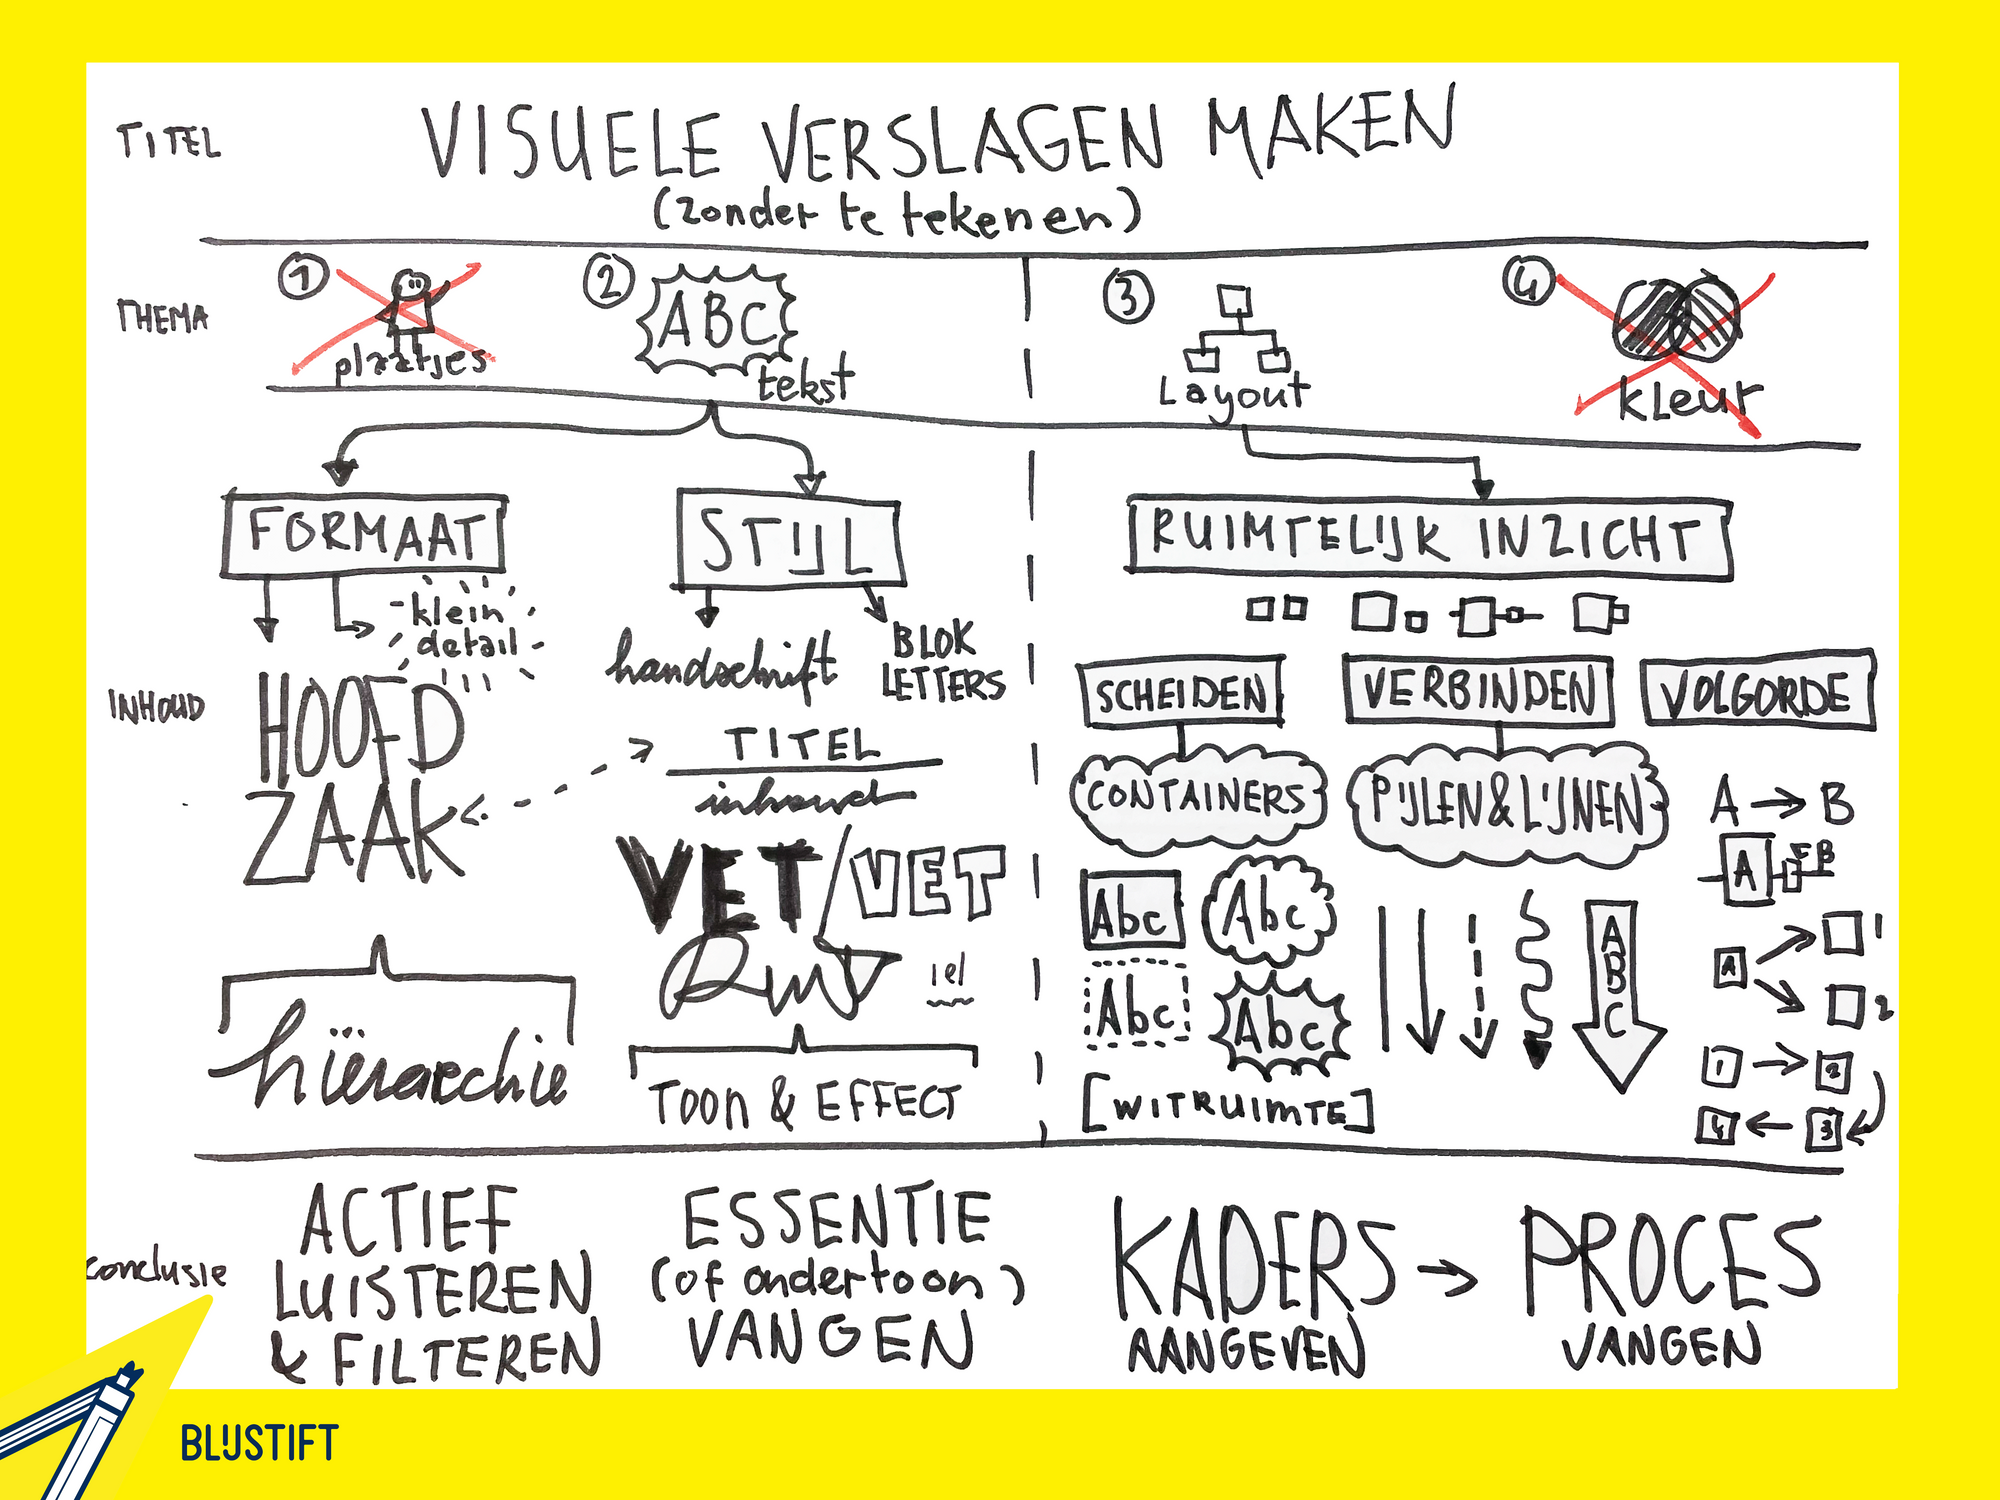 TITEL
VISUELE VERSLAGEN MAKEN
(zonder te tekenen)
THEMA
1
plaatjes
2
ABC
tekst
3
Layout
4
kleur
INHOUD
FORMAAT
klein
detail
HOOFD
ZAAK
hiërarchie
STIJL
handschrift
BLOK
LETTERS
TITEL
inhoud
VET/VET
TOON & EFFECT
RUIMTELIJK INZICHT
SCHEIDEN
CONTAINERS
Abc
Abc
Abc
Abc
[WITRUIMTE]
VERBINDEN
PIJLEN & LIJNEN
A
B
C
VOLGORDE
A → B
A
B
A
1
2
1 → 2
4 ← 3
conclusie
ACTIEF
LUISTEREN
& FILTEREN
ESSENTIE
(of ondertoon)
VANGEN
KADERS → PROCES
AANGEVEN
VANGEN
BLIJSTIFT